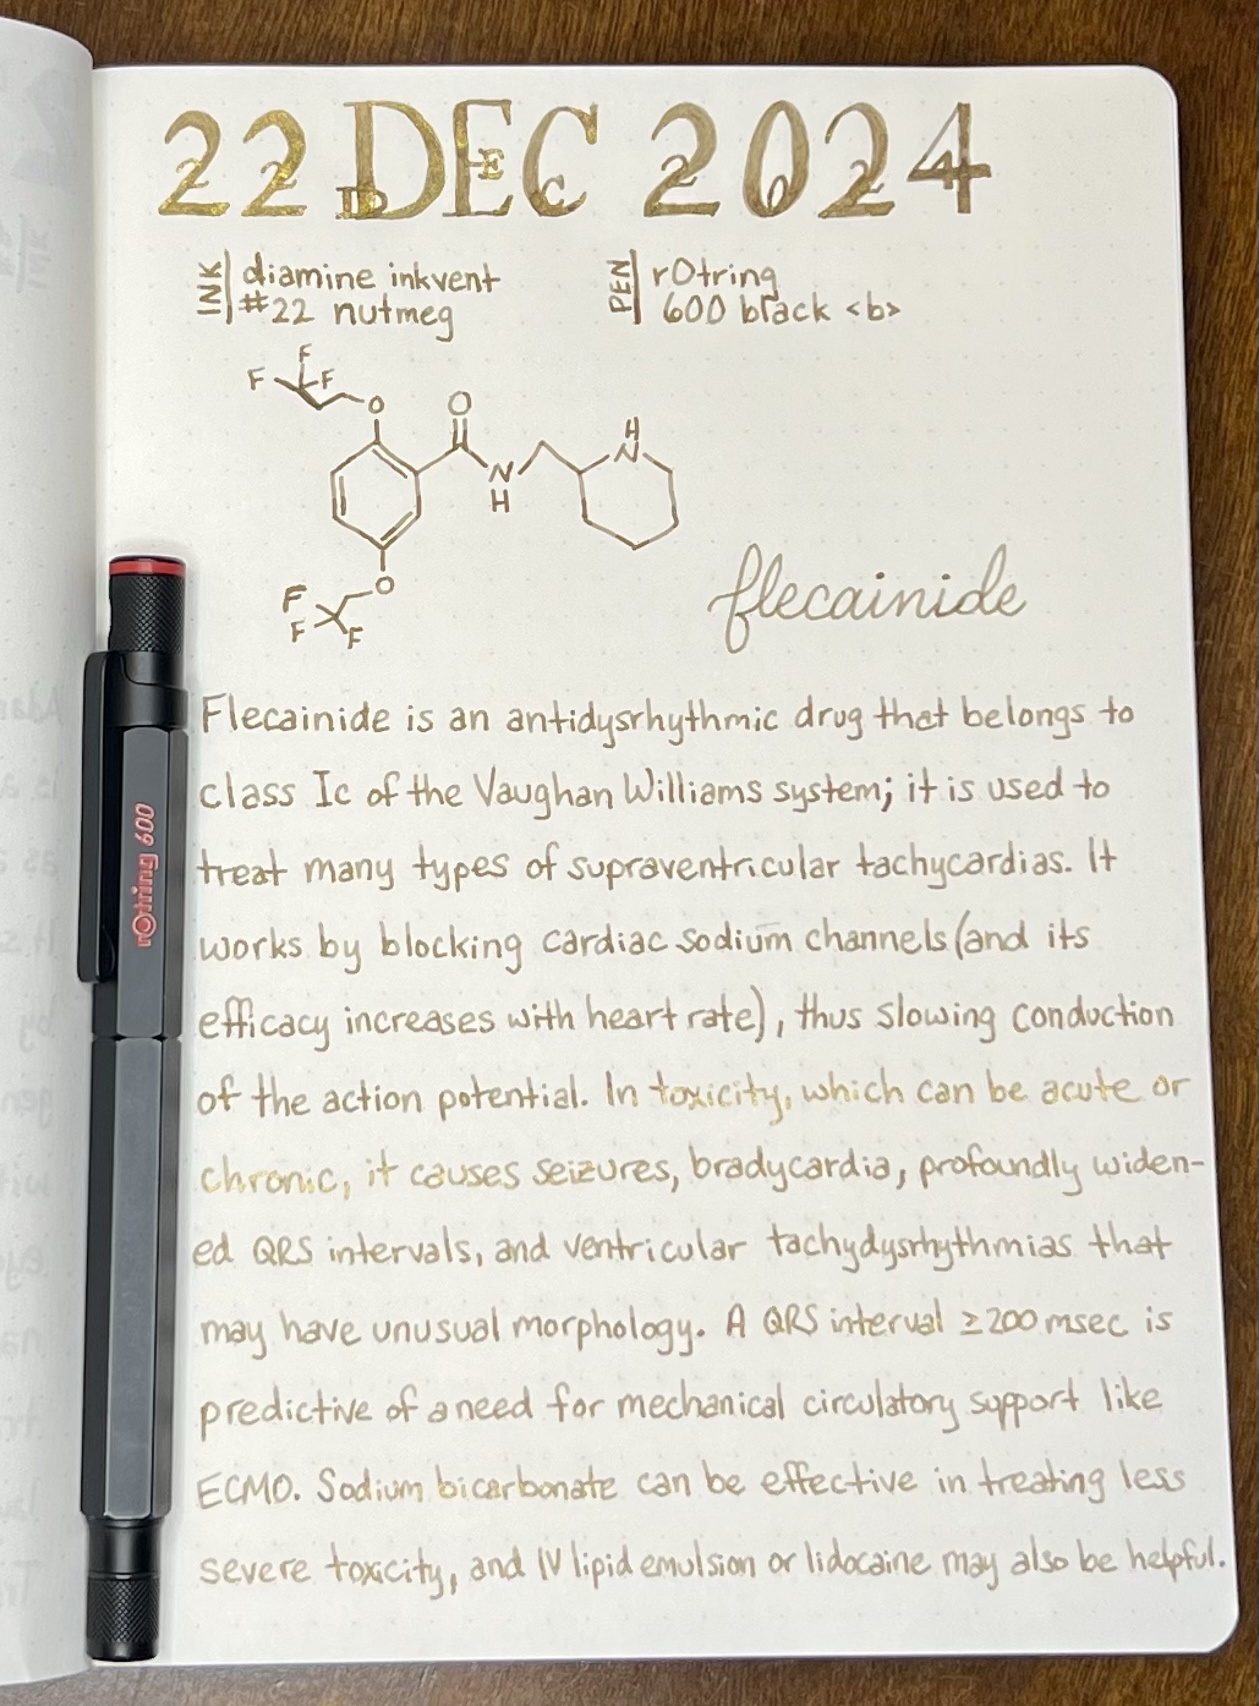 22 DEC 2024
INK diamine inkvent
#22 nutmeg
PEN rOtring
600 black <b>
F
F F
O
O
H
N
N
H
O
F
F F
flecainide
rOtring 600
Flecainide is an antidysrhythmic drug that belongs to
class Ic of the Vaughan Williams system; it is used to
treat many types of supraventricular tachycardias. It
works by blocking cardiac sodium channels (and its
efficacy increases with heart rate), thus slowing conduction
of the action potential. In toxicity, which can be acute or
chronic, it causes seizures, bradycardia, profoundly widen-
ed QRS intervals, and ventricular tachydysrhythmias that
may have unusual morphology. A QRS interval ≥200 msec is
predictive of a need for mechanical circulatory support like
ECMO. Sodium bicarbonate can be effective in treating less
severe toxicity, and IV lipid emulsion or lidocaine may also be helpful.